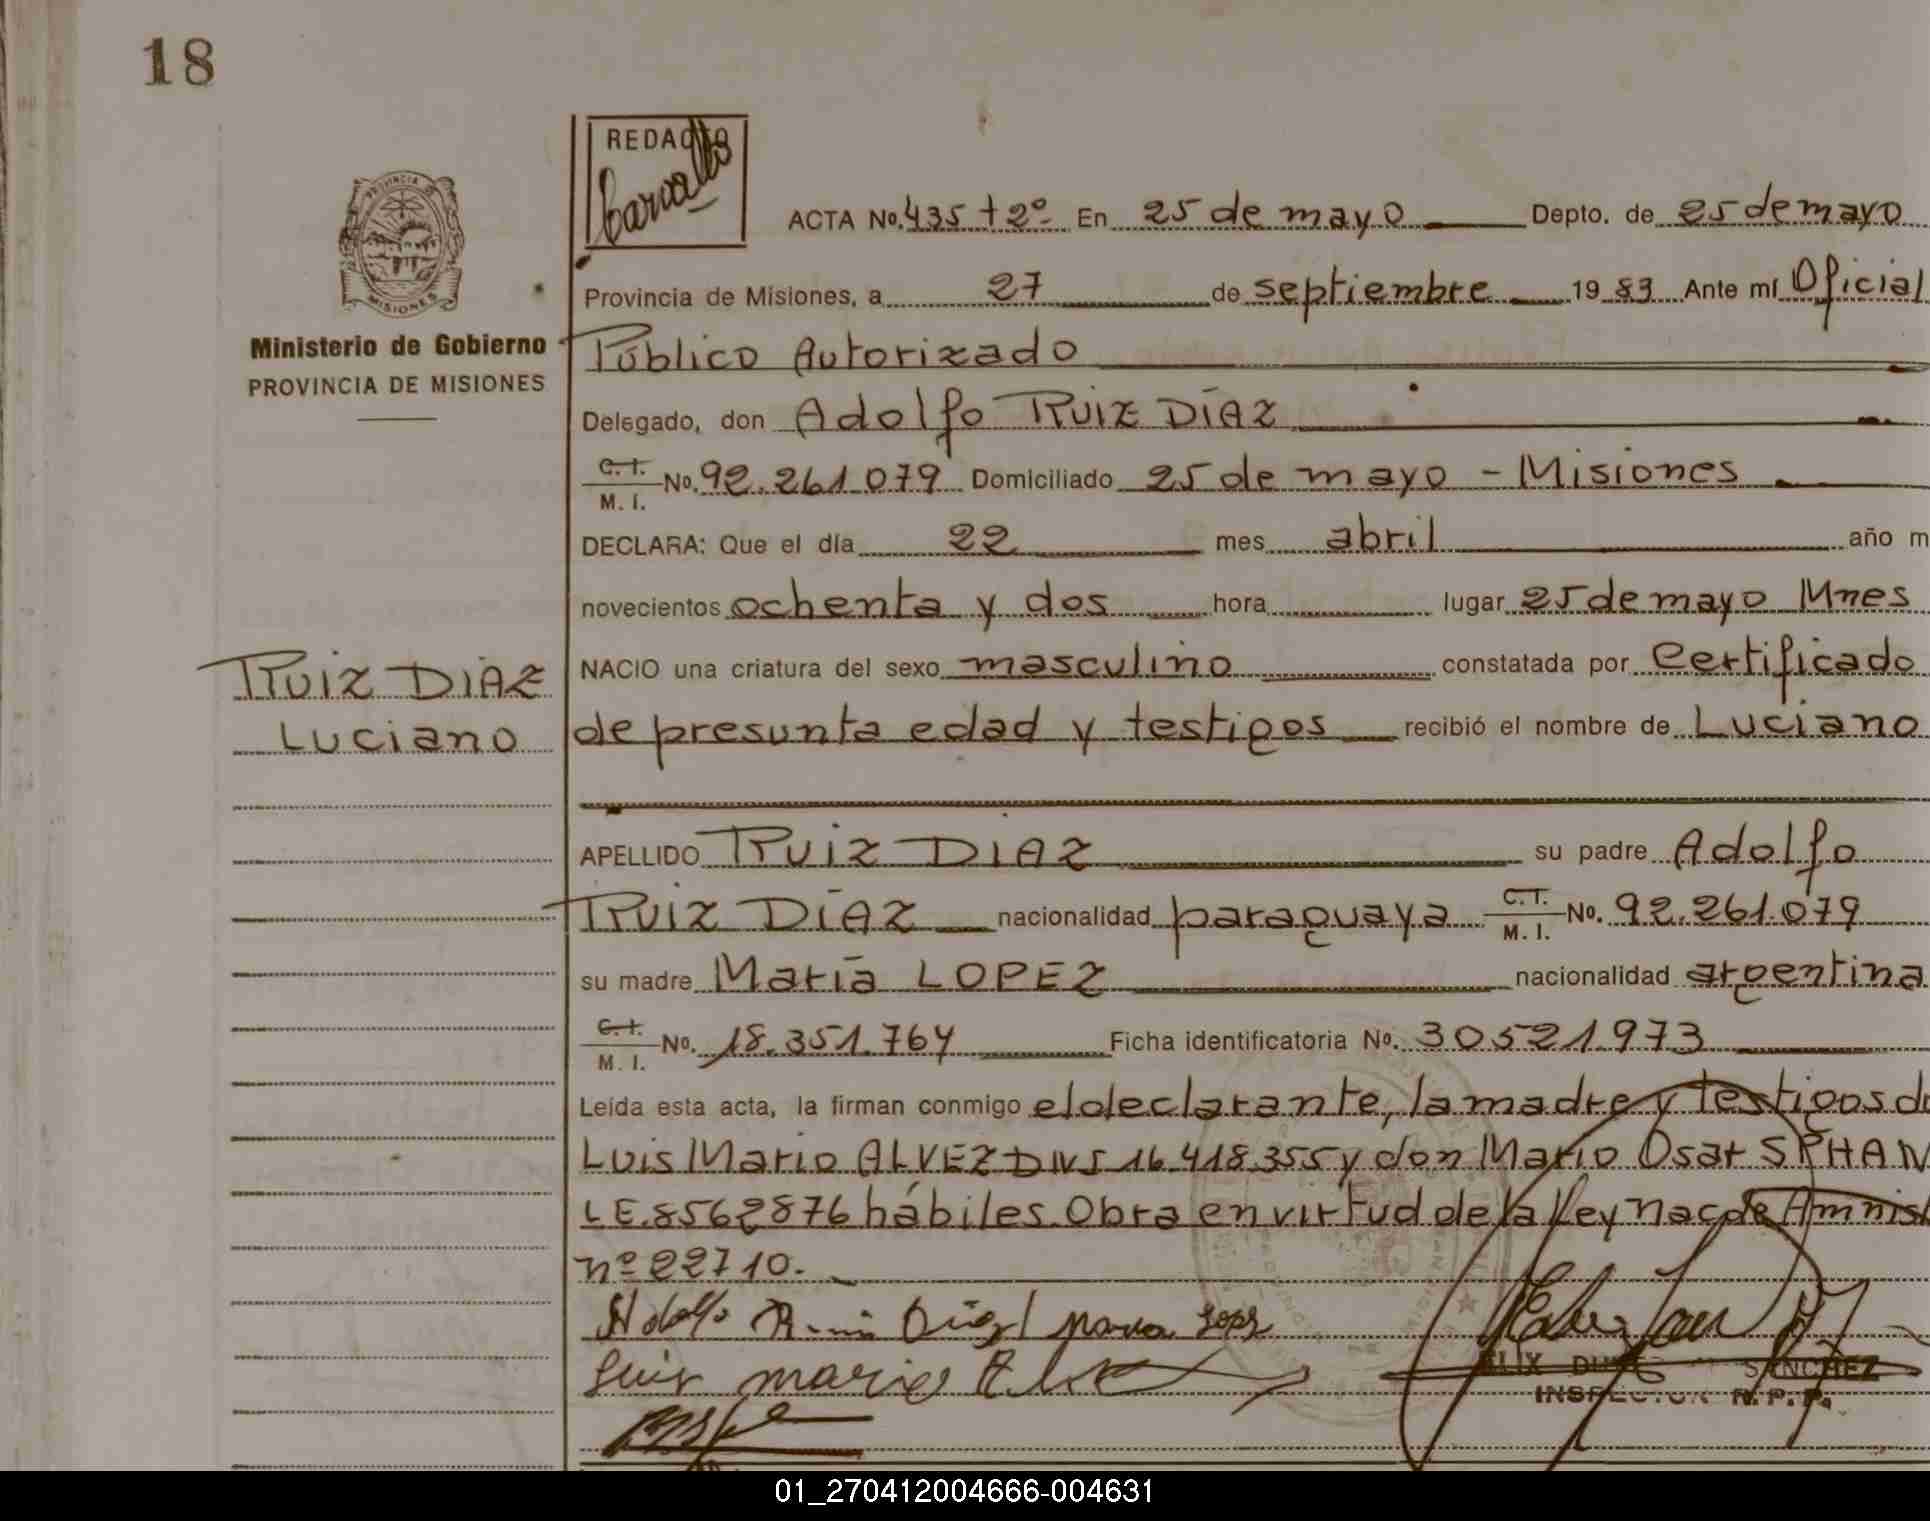 18
REDACTO
Carvallo
PROVINCIA D
MISIONES
Ministerio de Gobierno
PROVINCIA DE MISIONES
ACTA No. 435 t 2º En 25 de mayo Depto. de 25 de mayo
Provincia de Misiones, a 27 de septiembre 19 83 Ante mí Oficial
Público Autorizado
Delegado, don Adolfo RUIZ DÍAZ
C.I. M. I. No. 92.261.079 Domiciliado 25 de mayo - Misiones
DECLARA: Que el día 22 mes abril año m
novecientos ochenta y dos hora lugar 25 de mayo Mnes
RUIZ DIAZ
Luciano
NACIO una criatura del sexo masculino constatada por Certificado
de presunta edad y testigos recibió el nombre de Luciano
APELLIDO RUIZ DIAZ su padre Adolfo
RUIZ DÍAZ nacionalidad paraguaya C.I. M. I. No. 92.261.079
su madre María LOPEZ nacionalidad argentina
C.I. M. I. No. 18.351.764 Ficha identificatoria No. 30521973
Leída esta acta, la firman conmigo el declarante, la madre y testigos d
Luis Mario ALVEZ DNI 16.418.355 y don Mario Osar SPHAN
LE.8562876 hábiles. Obra en virtud de la Ley Nac de Amnist
nº 22710.
Adolfo Ruiz Diaz Maria Lopez
Luis mario
SANCHEZ
INSPECTOR R.P.P.
01_270412004666-004631